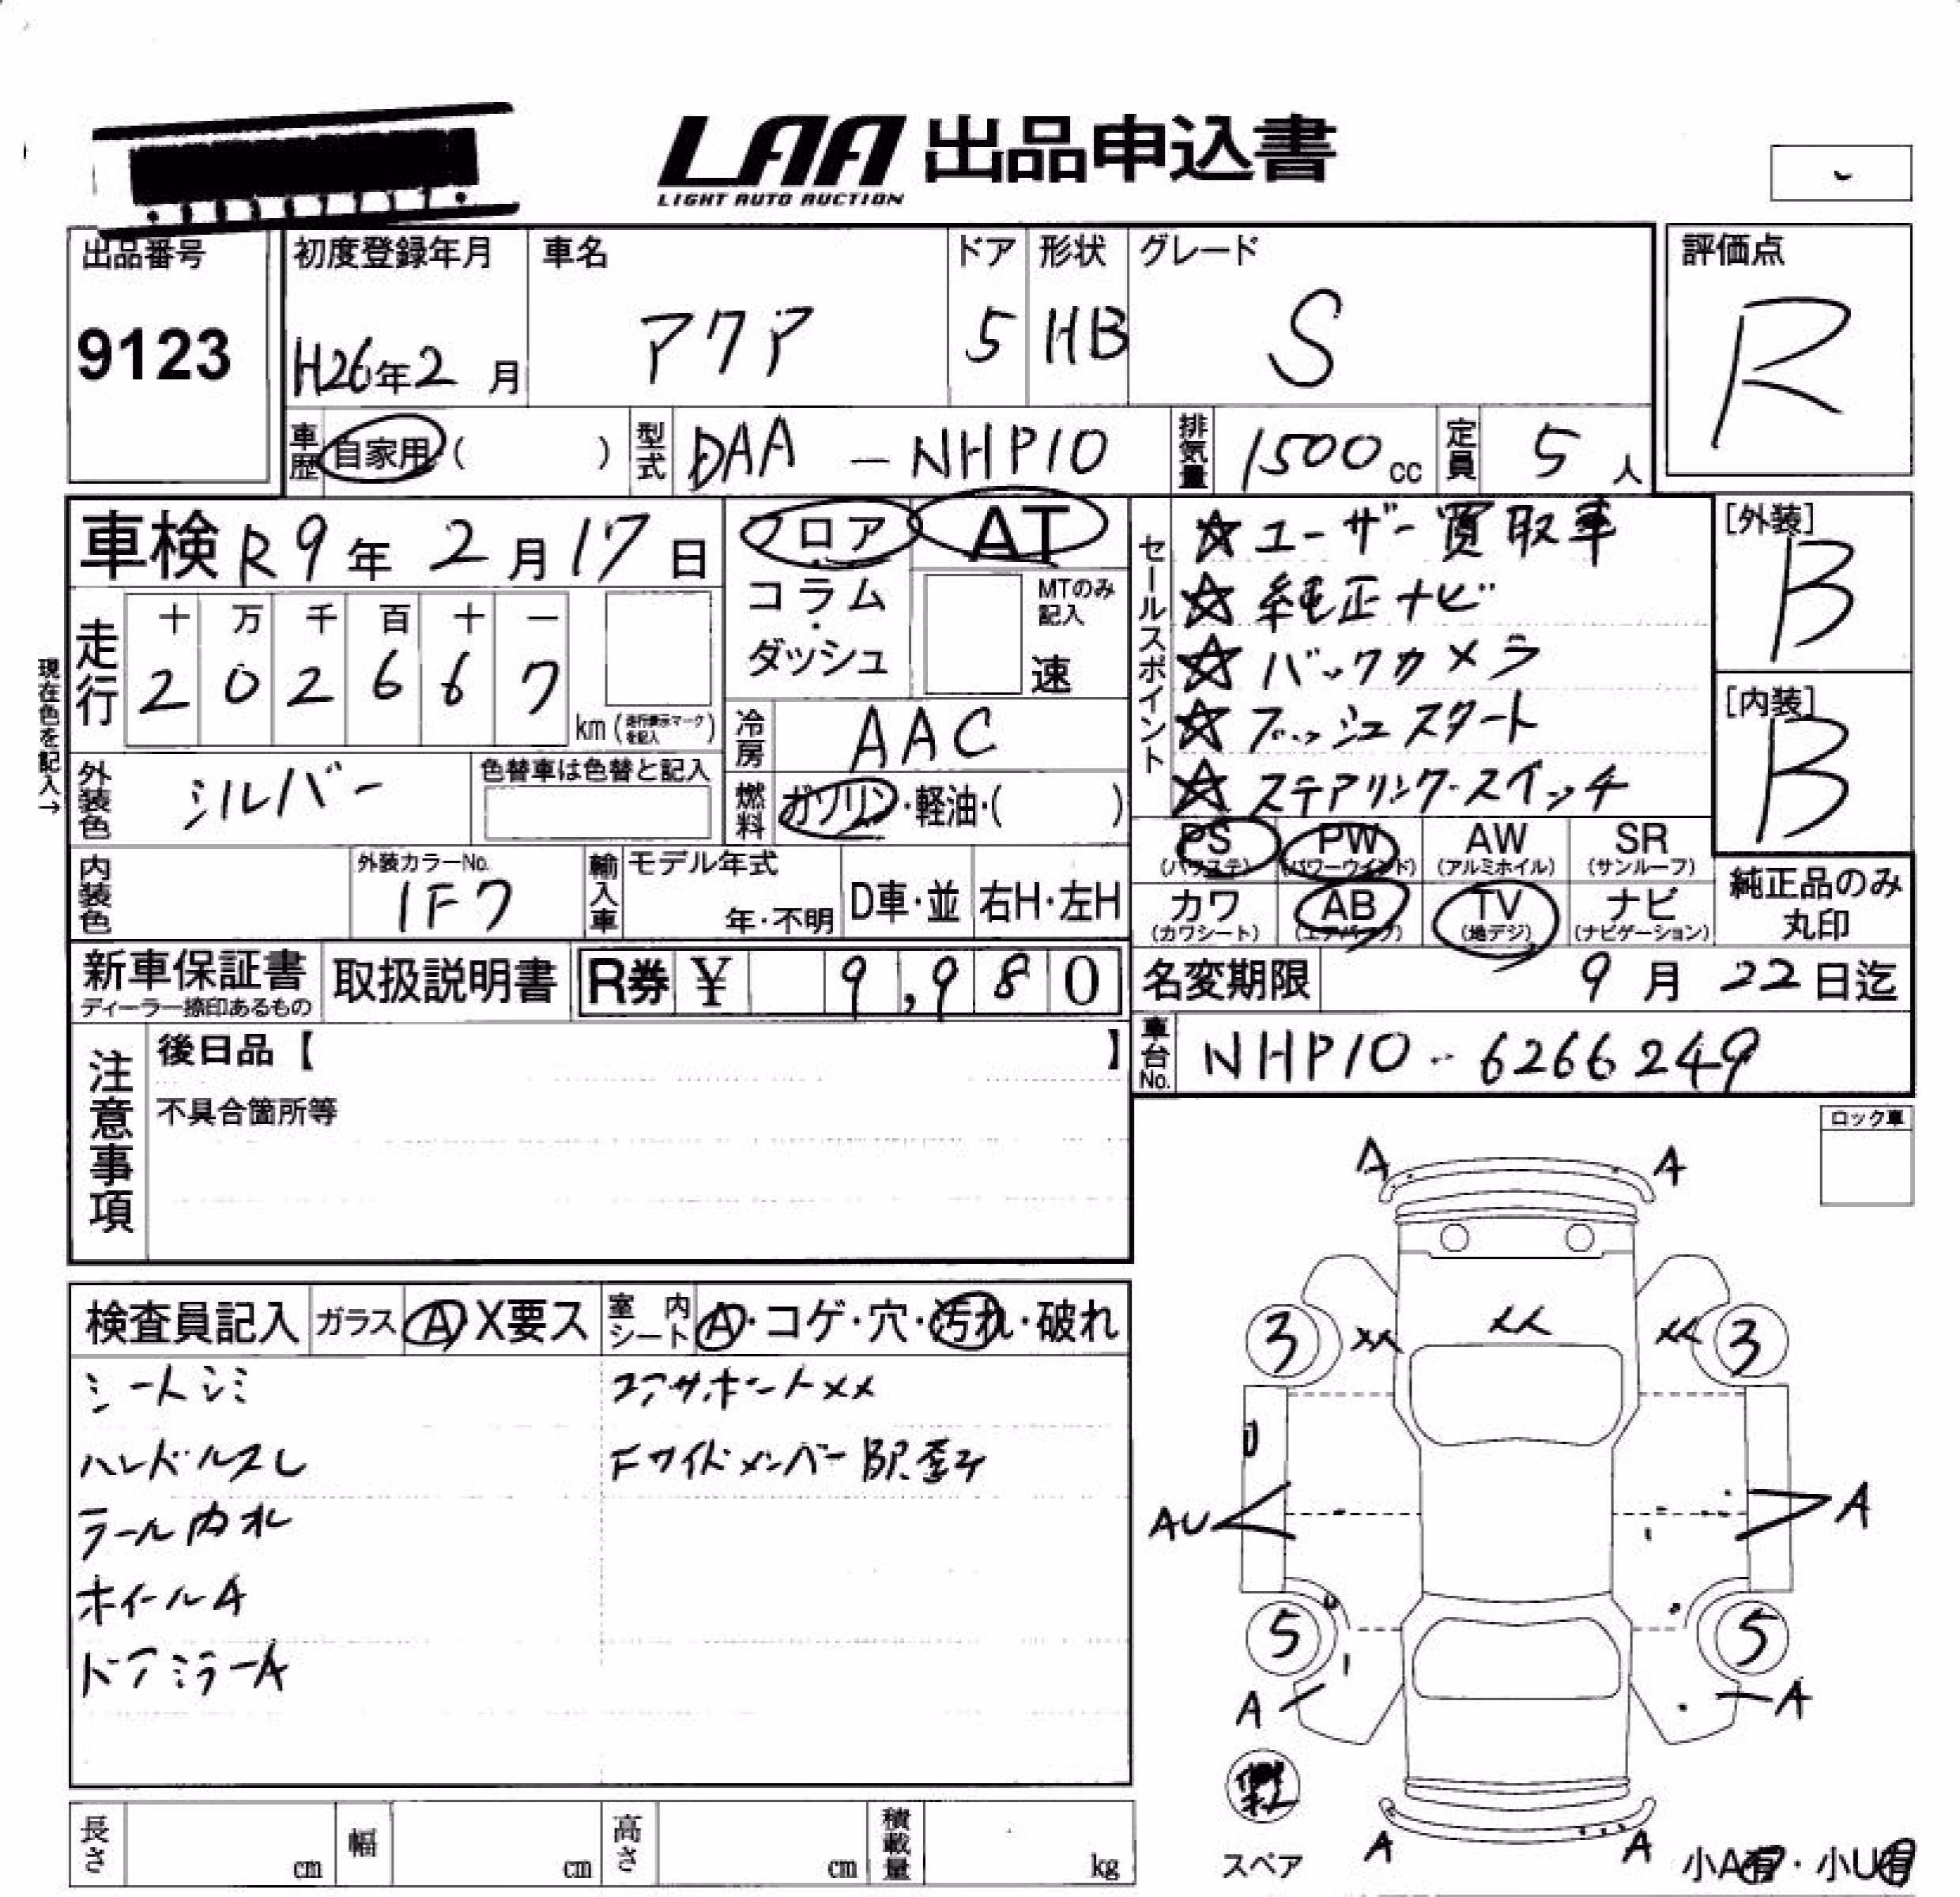 LAA 出品申込書
LIGHT AUTO AUCTION
出品番号
9123
初度登録年月
H26年2月
車名
アクア
ドア
5
形状
HB
グレード
S
評価点
R
車歴 自家用( )
型式 DAA-NHP10
排気量 1500cc
定員 5人
車検 R9年2月17日
フロア・コラム・ダッシュ
AT
MTのみ記入
速
セールスポイント
☆ユーザー買取車
☆純正ナビ
☆バックカメラ
☆プッシュスタート
☆ステアリング・スイッチ
[外装]
B
[内装]
B
現在色を記入→
走行
十 万 千 百 十 一
2 0 2 6 6 7
km(走行表示マークを記入)
冷房 AAC
燃料 ガソリン・軽油・( )
外装色 シルバー
色替車は色替と記入
内装色
外装カラーNo.
1F7
輸入車
モデル年式
年・不明
D車・並
右H・左H
PS (パワステ)
PW (パワーウインド)
AW (アルミホイル)
SR (サンルーフ)
カワ (カワシート)
AB (エアバッグ)
TV (地デジ)
ナビ (ナビゲーション)
純正品のみ丸印
新車保証書
ディーラー捺印あるもの
取扱説明書
R券 ¥ 9,980
名変期限 9月22日迄
車台No. NHP10-6266249
注意事項
後日品【 】
不具合箇所等
ロック車
検査員記入
ガラス A X要ス
室内シート A・コゲ・穴・汚れ・破れ
シートシミ
ハンドルスレ
ラール内札
ホイールA
ドアミラーA
コアサポートXX
Fサイドメンバー
A A
3 XX XX XX 3
U
AU A
5 5
A A
A A
スペア
小A有・小U有
長さ cm
幅 cm
高さ cm
積載量 kg